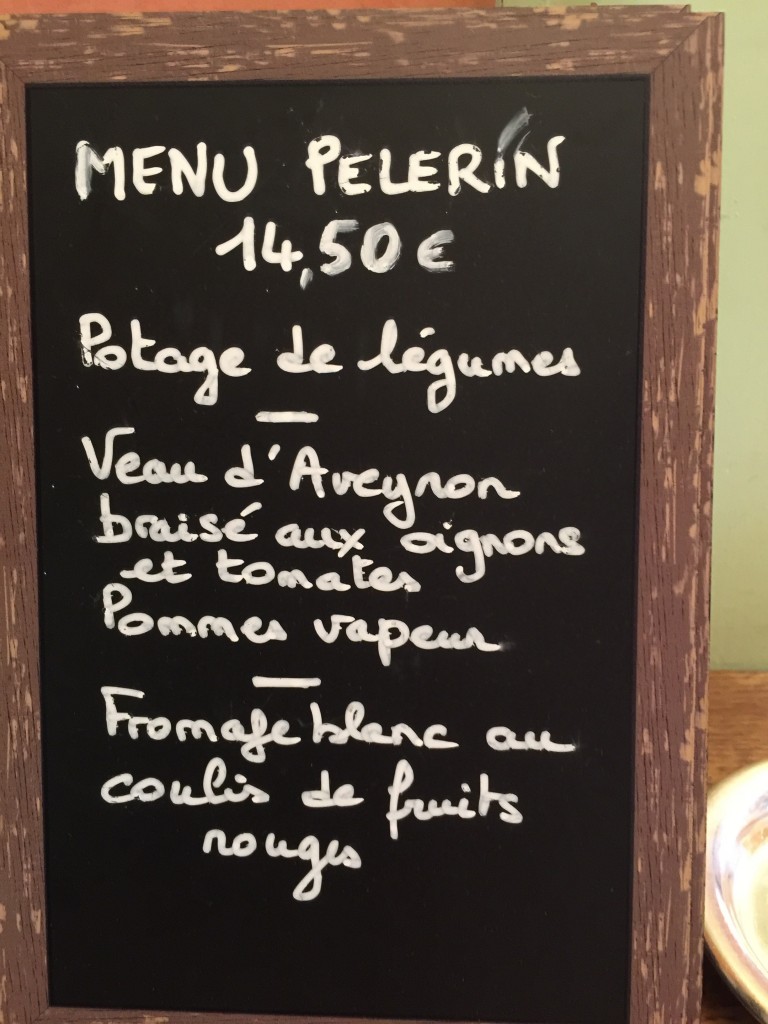 MENU PELERIN
14,50€
Potage de légumes
—
Veau d'Aveyron
braisé aux oignons
et tomates
Pommes vapeur
—
Fromage blanc au
coulis de fruits
rouges